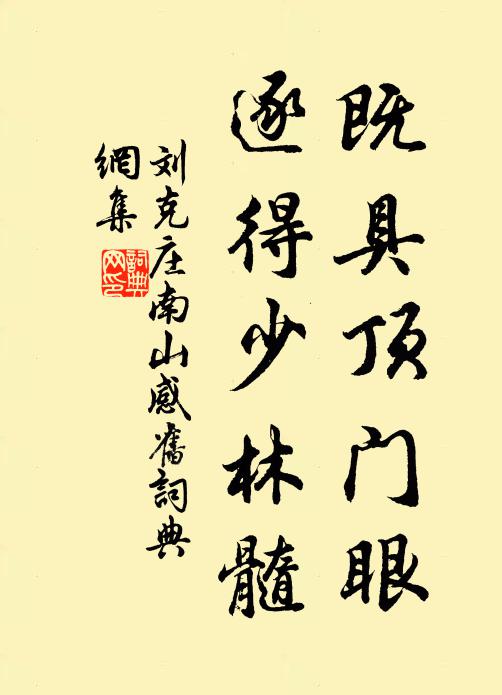 既具顶门眼
遂得少林髓
刘克庄南山感旧詞典
網集
詞典
网印